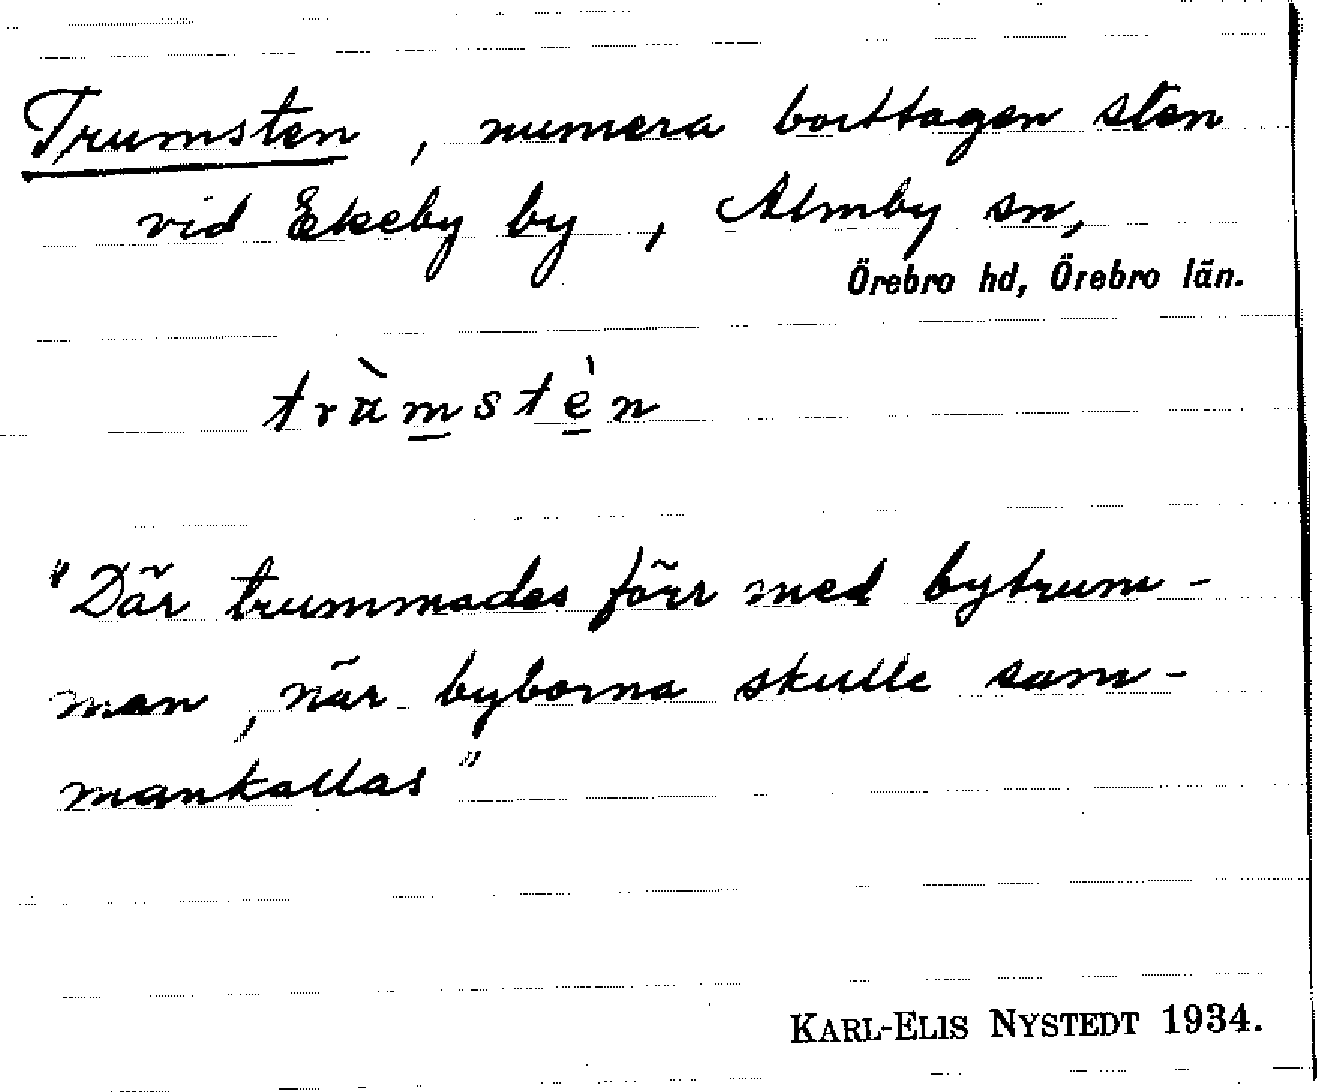 Trumsten, numera borttagen sten
vid Ekeby by, Almby sn,
Örebro hd, Örebro län.
"Där trummades förr med bytrum-
man, när byborna skulle sam-
mankallas"
KARL-ELIS NYSTEDT 1934.